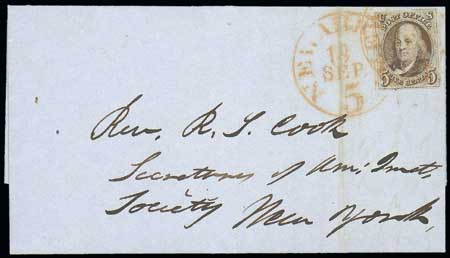 POST OFFICE
SEP
5
5 FIVE CENTS 5
Rev. R. S. Cook
Secretaries of Am. Tract
Society New York